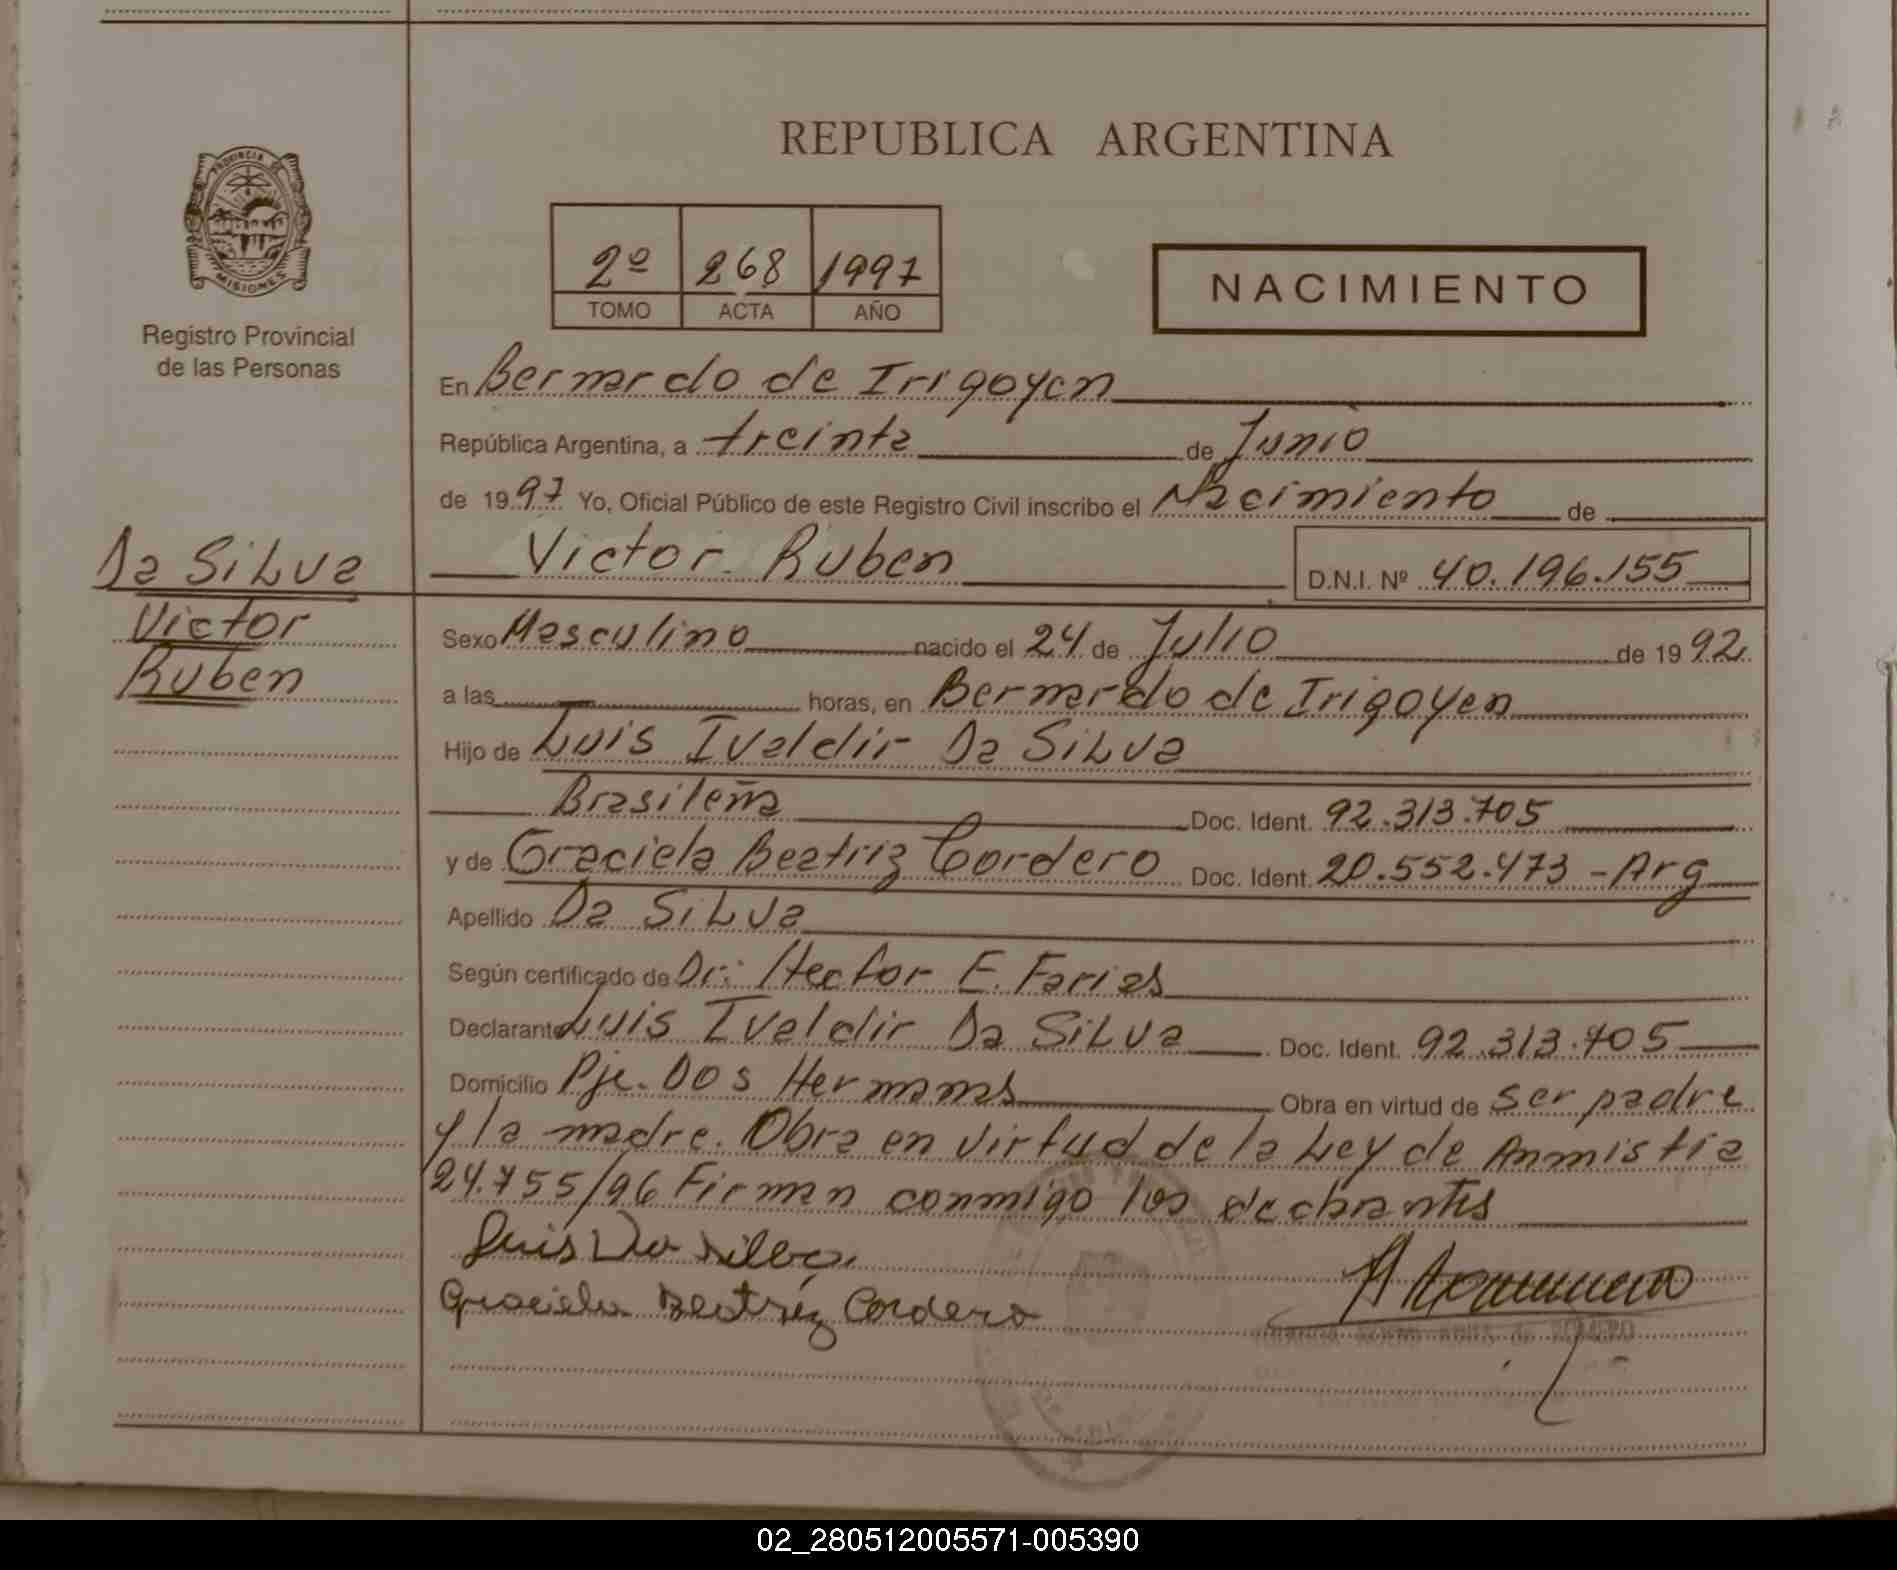 REPUBLICA ARGENTINA
PROVINCIA DE MISIONES
Registro Provincial
de las Personas
2º 268 1997
TOMO ACTA AÑO
NACIMIENTO
En Bernardo de Irigoyen
República Argentina, a treinta de Junio
de 1997 Yo, Oficial Público de este Registro Civil inscribo el Nacimiento de
Da Silva
Victor
Ruben
Victor Ruben D.N.I. Nº 40.196.155
Sexo Masculino nacido el 24 de Julio de 1992
a las horas, en Bernardo de Irigoyen
Hijo de Luis Ivaldir Da Silva
Brasileña Doc. Ident. 92.313.705
y de Graciela Beatriz Cordero Doc. Ident. 20.552.473 - Arg
Apellido Da Silva
Según certificado de Dr: Hector E. Farias
Declarante Luis Ivaldir Da Silva Doc. Ident. 92.313.705
Domicilio Pje. Dos Hermanas Obra en virtud de ser padre
y la madre. Obra en virtud de la Ley de Anmistia
24.755/96 Firman conmigo los declarantes
Luis Da Silva
Graciela Beatriz Cordero
02_280512005571-005390